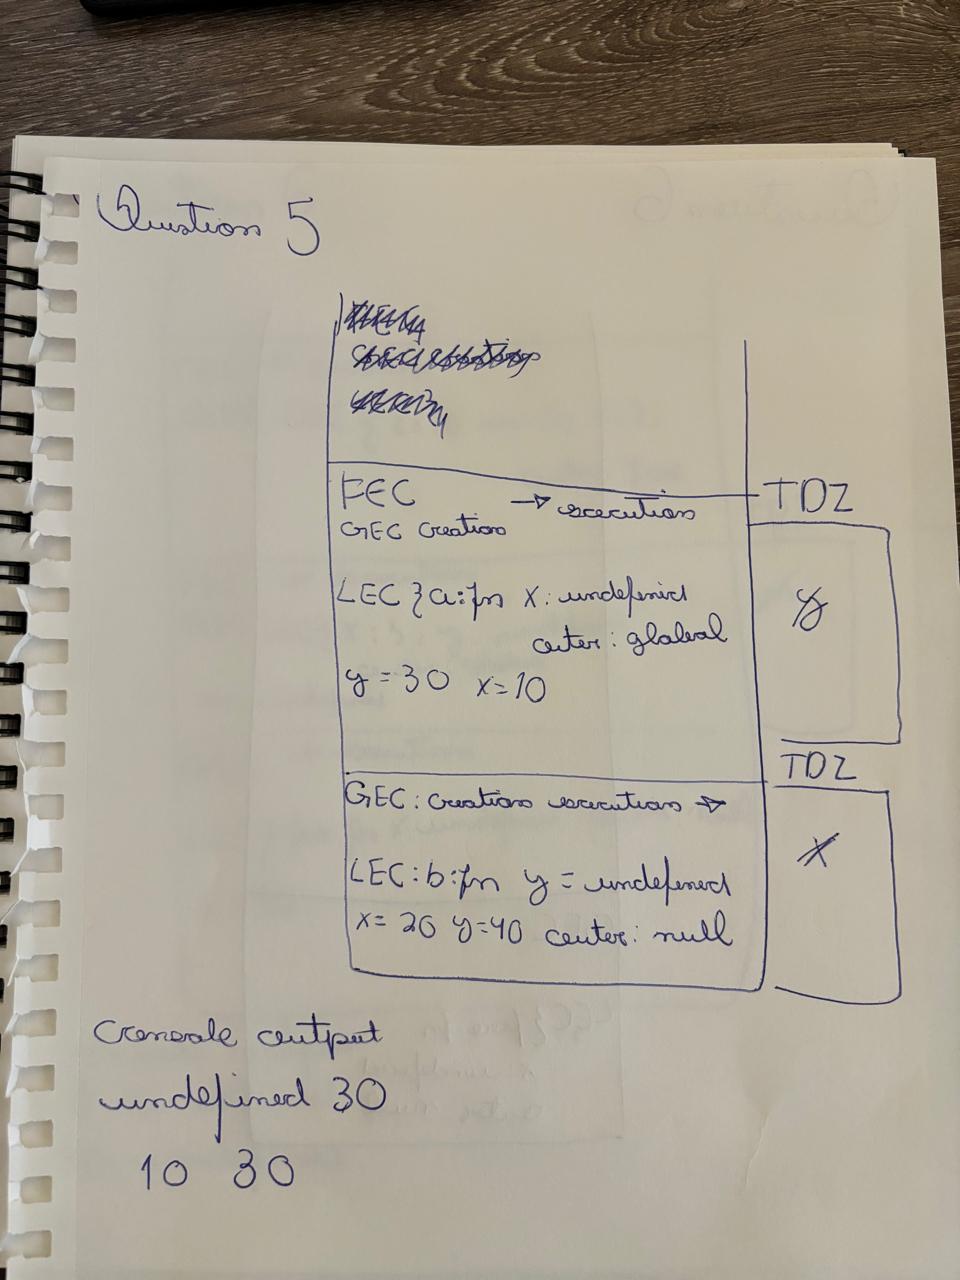 Question 5
FEC → execution
TDZ
GEC creation
LEC } a:fn x: undefined
outer: global
y
y = 30 x = 10
TDZ
GEC: creation execution →
x
LEC: b: fn y = undefined
x= 20 y=40 outer: null
Console output
undefined 30
10 30